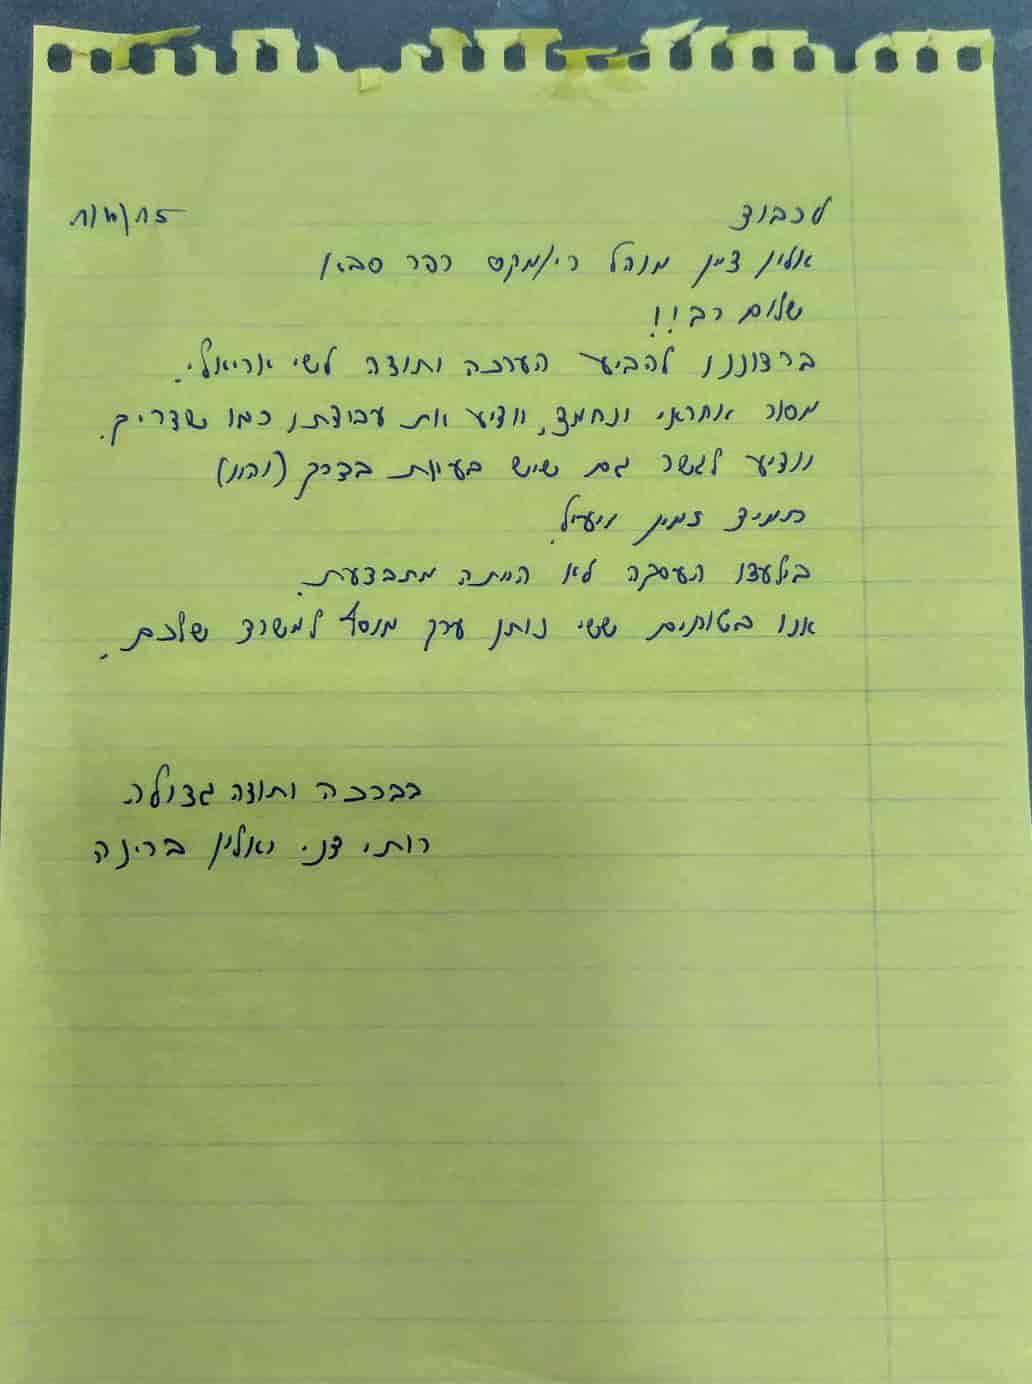 לכבוד
אלין ציין מנהל רי/מקס כפר סבא
שלום רב!!
ברצוננו להביע הערכה ותודה לשי אריאלי.
מסור אחראי ונחמד, יודע את עבודתו כמו שצריך.
ויודע לגשר גם שיש בעיות בדרך (והיו)
תמיד זמין ויעיל.
בילעדו העסקה לא הייתה מתבצעת.
אנו בטוחים ששי נותן ערך מוסף למשרד שלכם.
בברכה ותודה גדולה
רותי דני ואלין ברינה